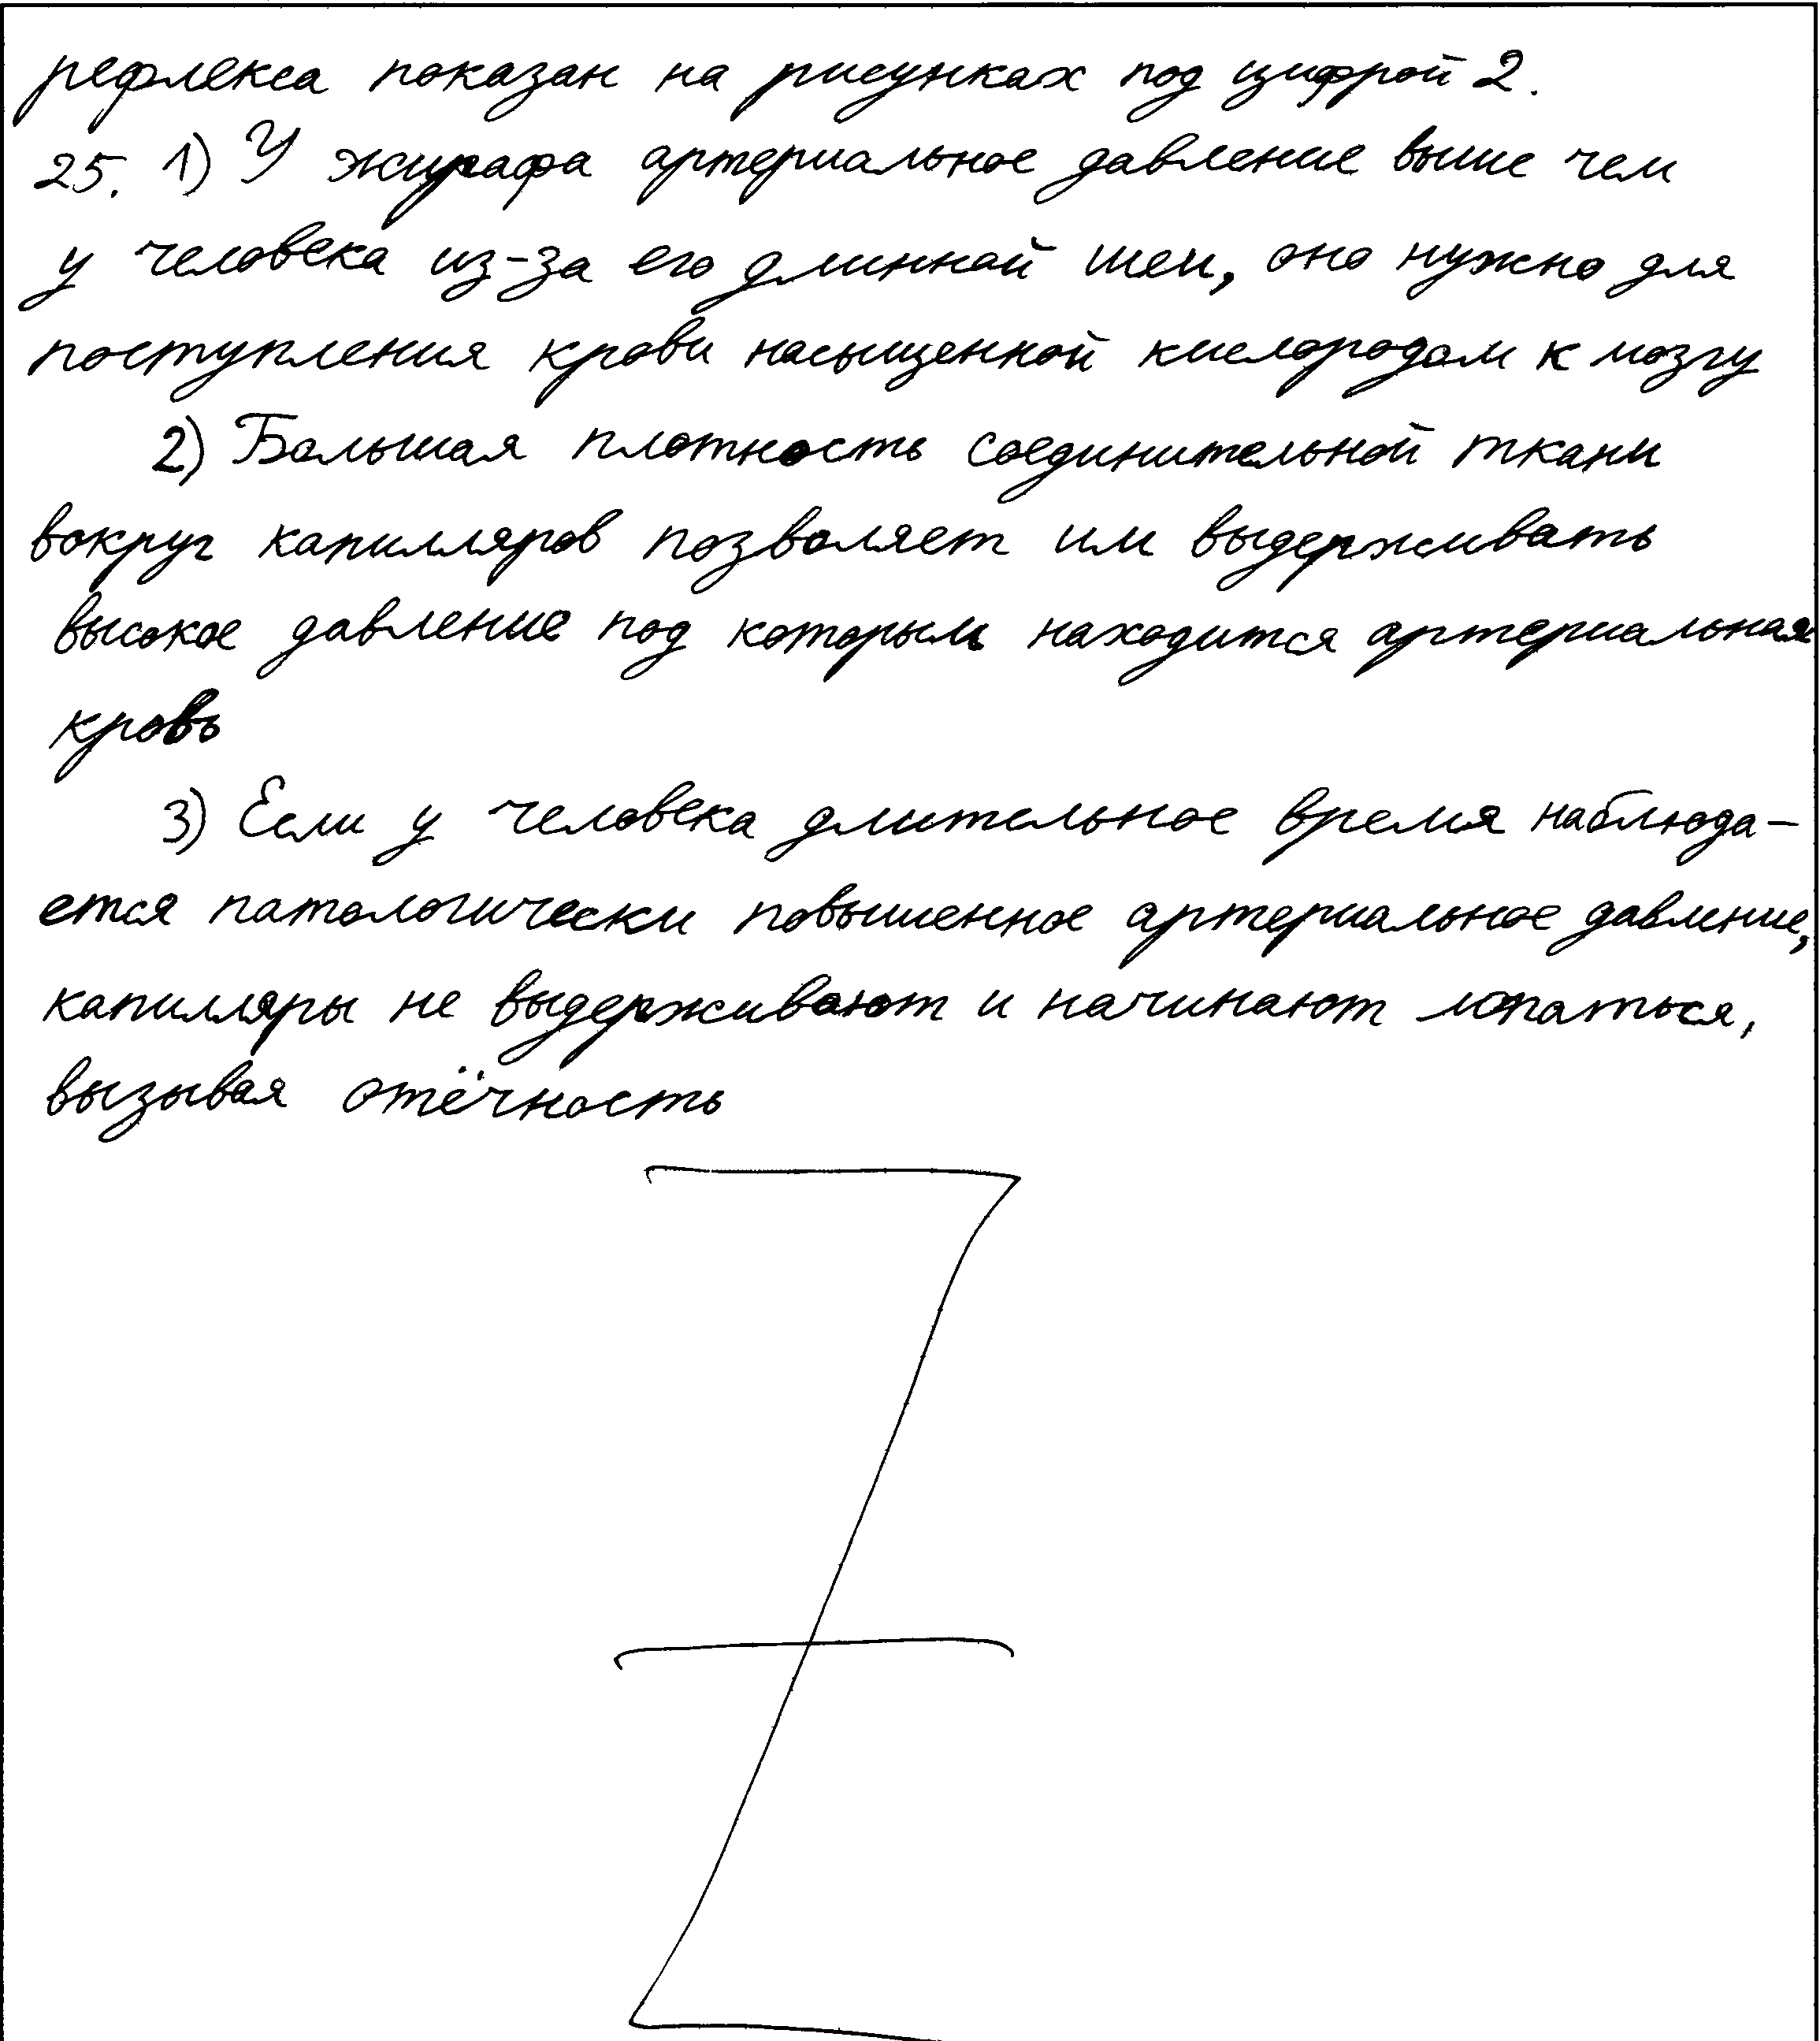 рефлекса показан на рисунках под цифрой 2.
25. 1) У жирафа артериальное давление выше чем
у человека из-за его длинной шеи, оно нужно для
поступления крови насыщенной кислородом к мозгу
2) Большая плотность соединительной ткани
вокруг капилляров позволяет им выдерживать
высокое давление под которым находится артериальная
кровь
3) Если у человека длительное время наблюда-
ется патологически повышенное артериальное давление,
капилляры не выдерживают и начинают лопаться,
вызывая отёчность